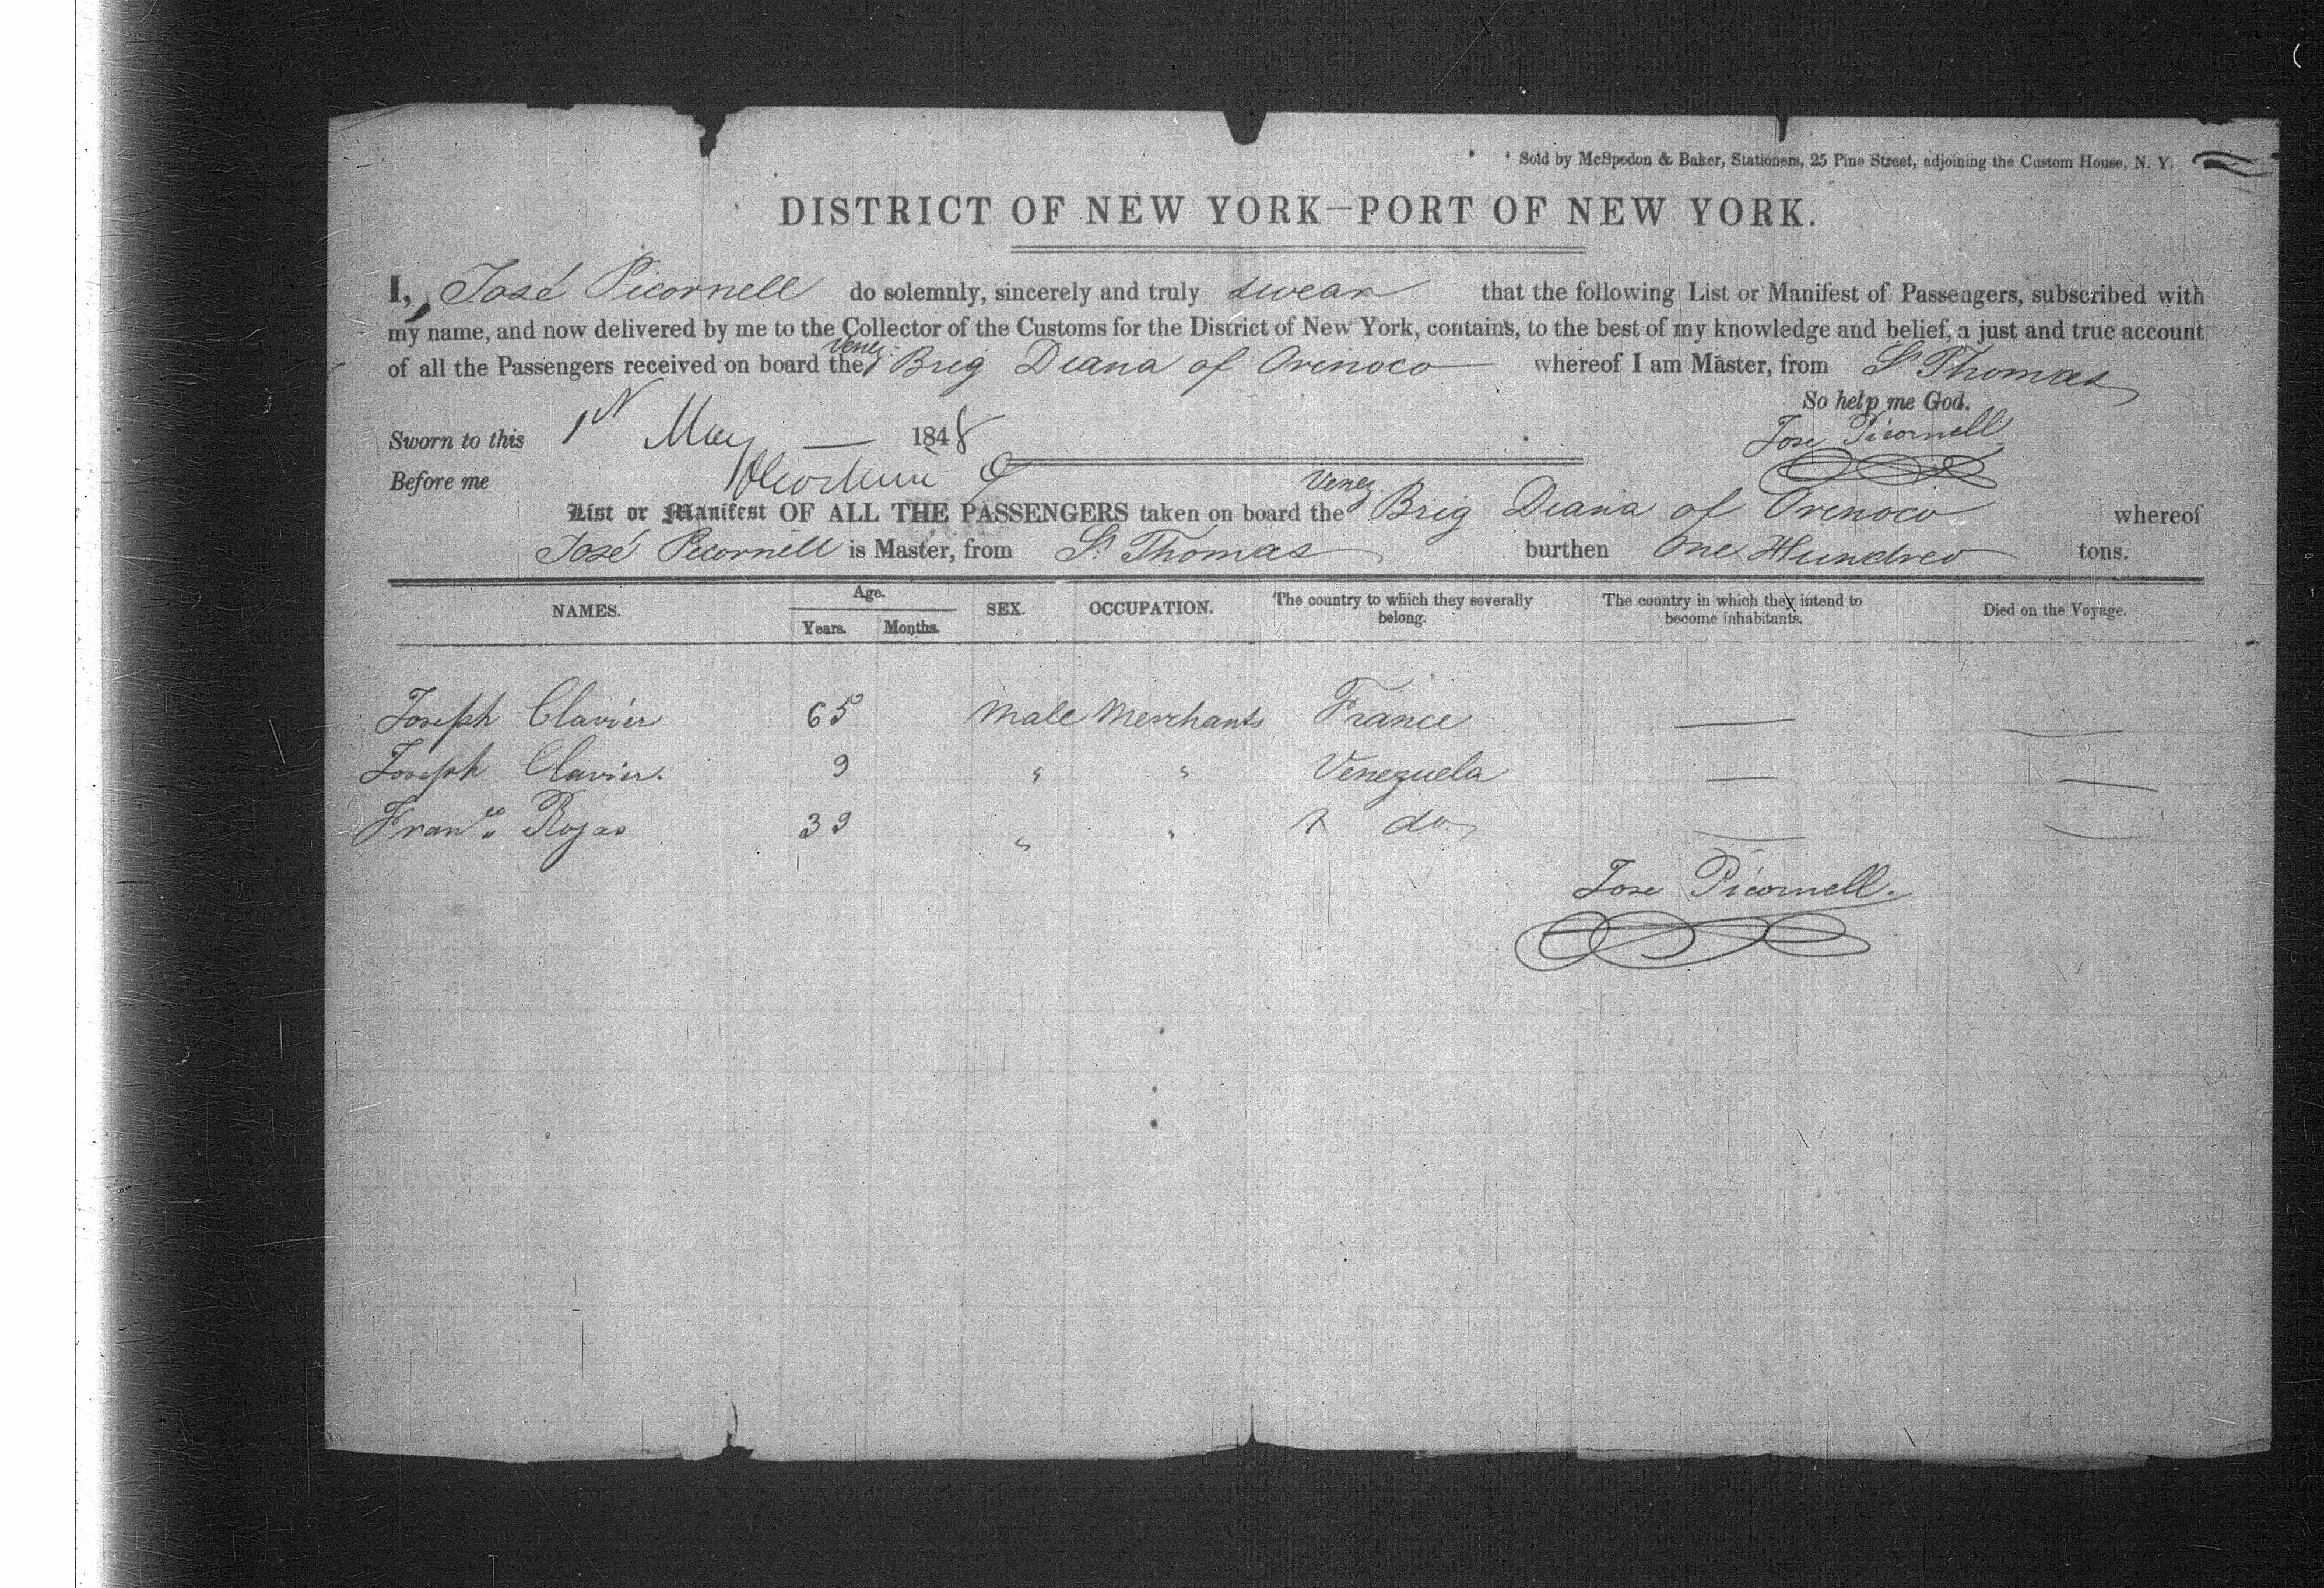 Sold by McSpedon & Baker, Stationers, 25 Pine Street, adjoining the Custom House, N. Y.
DISTRICT OF NEW YORK—PORT OF NEW YORK.
I, José Picornell do solemnly, sincerely and truly swear that the following List or Manifest of Passengers, subscribed with
my name, and now delivered by me to the Collector of the Customs for the District of New York, contains, to the best of my knowledge and belief, a just and true account
of all the Passengers received on board the Venez. Brig Diana of Orinoco whereof I am Master, from St. Thomas
So help me God.
Sworn to this 1st May — 1848 Jose Picornell
Before me
List or Manifest OF ALL THE PASSENGERS taken on board the Venez. Brig Diana of Orinoco whereof
José Picornell is Master, from St. Thomas burthen One Hundred tons.
NAMES. Age. Years. Months. SEX. OCCUPATION. The country to which they severally belong. The country in which they intend to become inhabitants. Died on the Voyage.
Joseph Clavier 65 Male Merchants France — —
Joseph Clavier. 9 " " Venezuela — —
Franco. Rojas 39 " " do. — —
Jose Picornell.